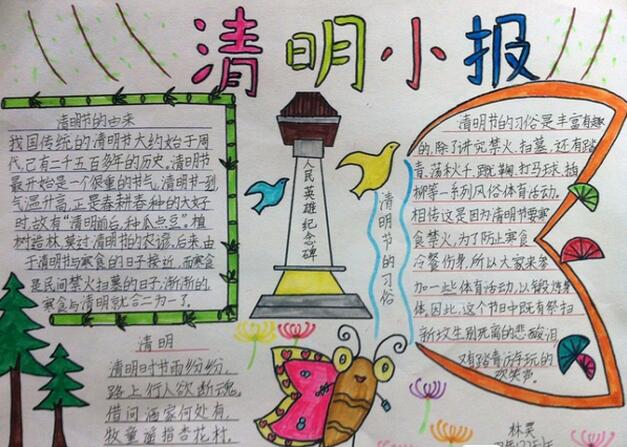 清明小报
清明节的由来
我国传统的清明节大约始于周
代,已有二千五百多年的历史。清明节
最开始是一个很重的节气,清明节一到,
气温升高,正是春耕春种的大好
时,故有“清明前后,种瓜点豆”。植
树造林,莫过清明节的农谚。后来,由
于清明节与寒食的日子接近,而寒食
是民间禁火扫墓的日子,渐渐的,
寒食与清明就合二为一了。
清明
清明时节雨纷纷,
路上行人欲断魂。
借问酒家何处有,
牧童遥指杏花村。
人民英雄纪念碑
清明节的习俗
清明节的习俗是丰富有趣
的,除了讲究禁火、扫墓,还有踏
青、荡秋千、蹴鞠、打马球、插
柳等一系列风俗体育活动。
相传这是因为清明节要寒
食禁火,为了防止寒食
冷餐伤身,所以大家来参
加一些体育活动,以锻炼身
体。因此,这个节日中既有祭扫
新坟生别死离的悲酸泪
又有踏青游玩的
欢笑声。